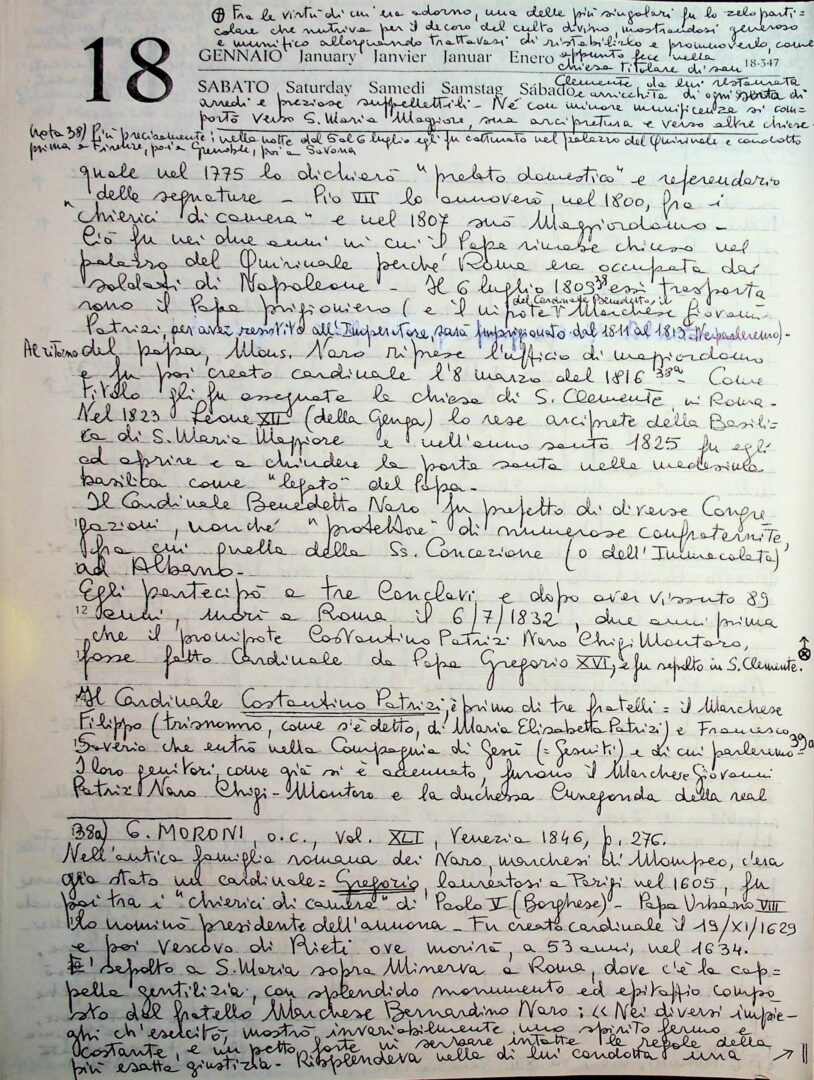 ⊕ Fra le virtù di cui era adorno, una delle più singolari fu lo zelo parti=
colare che nutriva per il decoro del culto divino, mostrandosi generoso
e munifico allorquando trattavasi di ristabilirlo e promuoverlo, come
18 GENNAIO January Janvier Januar Enero appunto fece nella
chiesa titolare di san 18-347
SABATO Saturday Samedi Samstag Sábado Clemente da lui restaurata
e arricchita di ogni sorta di
arredi e preziose suppellettili - Né con minore munificenza si com=
portò verso S. Maria Maggiore, sua arcipretura e verso altre chiese -
nota 38) Più precisamente: nella notte dal 5 al 6 luglio egli fu catturato nel palazzo del Quirinale e condotto
prima a Firenze, poi a Grenoble, poi a Savona
quale nel 1775 lo dichiarò "prelato domestico" e referendario
delle segnature - Pio VII lo annoverò, nel 1800, fra i
"chierici di camera" e nel 1807 suo Maggiordomo -
Ciò fu nei due anni in cui il Papa rimase chiuso nel
palazzo del Quirinale perché Roma era occupata dai
soldati di Napoleone - Il 6 luglio 1809 38 essi trasporta
rono il Papa prigioniero (e il nipote del Cardinale Benedetto, il Marchese Giovanni
Patrizi, per aver resistito all'Imperatore, sarà imprigionato dal 1811 al 1813. Ne parleremo) -
Al ritorno del papa, Mons. Naro riprese l'ufficio di maggiordomo
e fu poi creato cardinale l'8 marzo del 1816 38a - Come
titolo gli fu assegnata la chiesa di S. Clemente, in Roma -
Nel 1823 Leone XII (della Genga) lo rese arciprete della Basili=
ca di S. Maria Maggiore e nell'anno santo 1825 fu egli
ad aprire e a chiudere la porta santa nella medesima
basilica come "legato" del Papa -
Il Cardinale Benedetto Naro fu prefetto di diverse Congre
gazioni, nonché "protettore" di numerose confraternite,
fra cui quella della Ss. Concezione (o dell'Immacolata)
ad Albano -
Egli partecipò a tre Conclavi e dopo aver vissuto 89
12 anni, morì a Roma il 6/7/1832, due anni prima
che il pronipote Costantino Patrizi Naro Chigi Montoro,
fosse fatto Cardinale da Papa Gregorio XVI, e fu sepolto in S. Clemente. ⊗
Il Cardinale Costantino Patrizi, è primo di tre fratelli = il Marchese
Filippo (trisnonno, come s'è detto, di Maria Elisabetta Patrizi) e Francesco
Saverio che entrò nella Compagnia di Gesù (= Gesuiti) e di cui parleremo - 39a
I loro genitori, come già si è accennato, furono il Marchese Giovanni
Patrizi Naro Chigi-Montoro e la duchessa Cunegonda della real
38a) G. MORONI, o.c., vol. XLI, Venezia 1846, p. 276.
Nell'antica famiglia romana dei Naro, marchesi di Mompeo, c'era
già stato un cardinale = Gregorio, laureatosi a Parigi nel 1605, fu
poi tra i "chierici di camera" di Paolo V (Borghese) - Papa Urbano VIII
lo nominò presidente dell'annona - Fu creato cardinale il 19/XI/1629
e poi Vescovo di Rieti ove morirà, a 53 anni, nel 1634.
E' sepolto a S. Maria sopra Minerva a Roma, dove c'è la cap=
pella gentilizia, con splendido monumento ed epitaffio compo
sto dal fratello Marchese Bernardino Naro: « Nei diversi impie=
ghi ch'esercitò, mostrò invariabilmente uno spirito fermo e
costante, e un petto forte in servare intatte le regole della
più esatta giustizia - Risplendeva nella di lui condotta una → ||